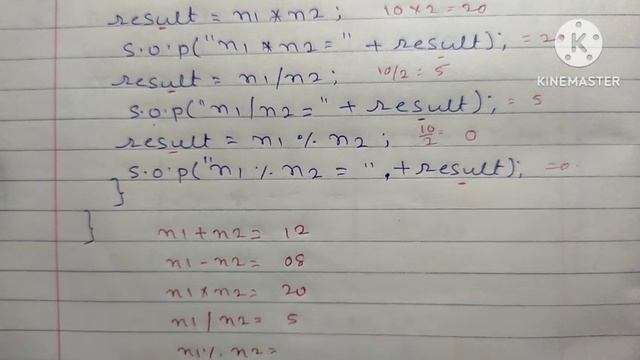 result = n1 * n2; 10 x 2 = 20
s.o.p("n1 * n2 = " + result); = 2
result = n1 / n2; 10/2 = 5
s.o.p("n1 / n2 = " + result); = 5
result = n1 % n2; 10/2 0
s.o.p("n1 % n2 = ", + result); = 0
}
}
n1 + n2 = 12
n1 - n2 = 08
n1 * n2 = 20
n1 / n2 = 5
n1 % n2 =
KINEMASTER